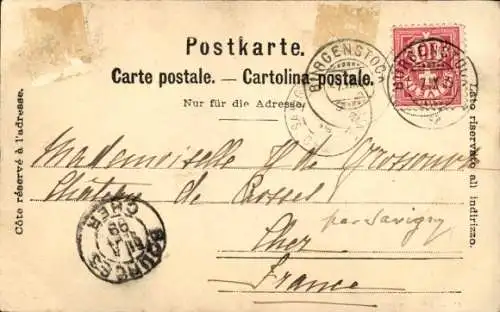 Postkarte.
Carte postale. — Cartolina postale.
Nur für die Adresse.
Côte réservé à l'adresse.
Lato riservato all indirizzo.
BÜRGENSTOCK
BÜRGENSTOCK
Mademoiselle de
Château de Rosset
par Savigny
Cher
France
BOURGES
CHER
99